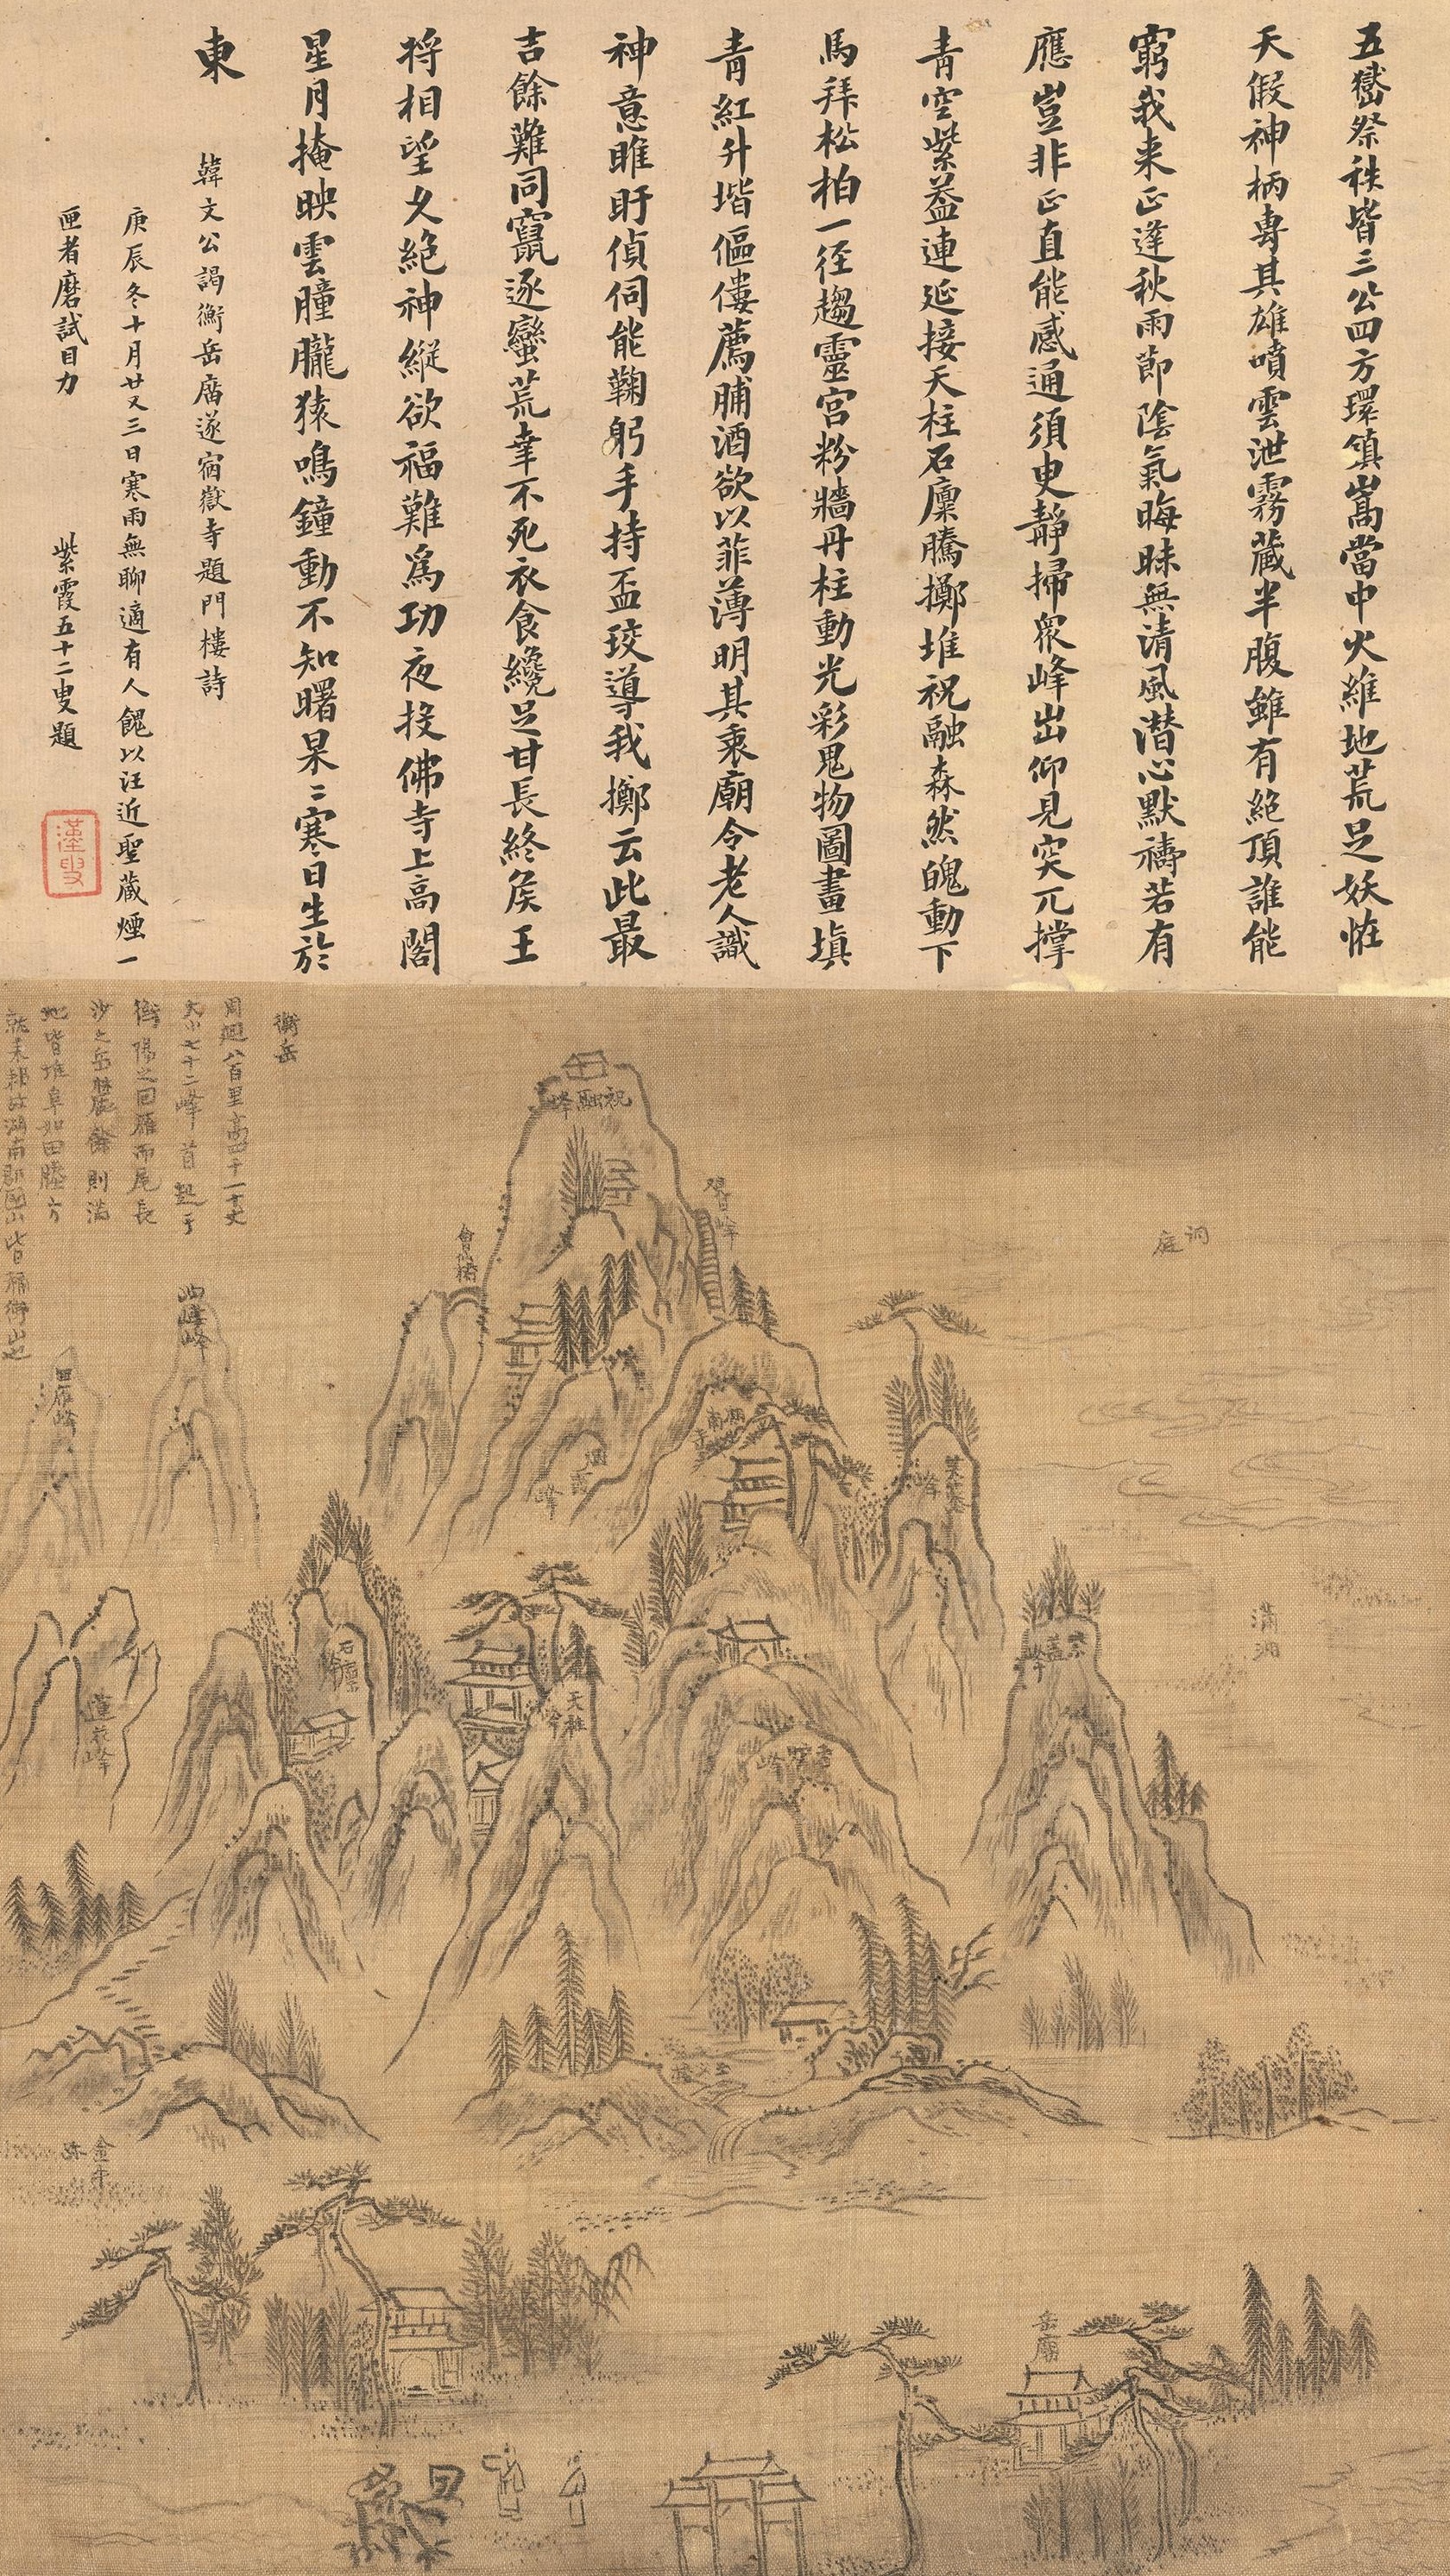 五嶽祭秩皆三公四方環鎮嵩當中火維地荒足妖恠
天假神柄專其雄噴雲泄霧藏半腹雖有絕頂誰能
窮我来正逢秋雨節陰氣晦昧無清風潛心默禱若有
應豈非正直能感通須臾靜掃衆峰出仰見突兀撑
青空紫葢連延接天柱石廩騰擲堆祝融森然魄動下
馬拜松柏一径趨靈宫粉牆丹柱動光彩鬼物圖畫塡
青紅升堦傴僂薦脯酒欲以菲薄明其衷廟令老人識
神意睢盱偵伺能鞠躬手持盃珓導我擲云此最
吉餘難同竄逐蠻荒幸不死衣食纔足甘長終矦王
将相望久絕神縱欲福難爲功夜投佛寺上高閣
星月掩映雲朣朧猿鳴鐘動不知曙杲〻寒日生於
東
韓文公謁衡岳廟遂宿嶽寺題門樓詩
庚辰冬十月廿又三日寒雨無聊適有人餽以汪近聖藏煙一
匣者磨試目力
紫霞五十二叟題
漢叟
衡岳
周廻八百里高四千一十丈
大小七十二峰首起于
衡陽之回雁而尾長
沙之岳麓餘則滿
地皆堆阜如田塍方
就来郡故湖南郡國山皆稱衡山也
祝融峰
會仙橋
洞庭
回雁峰
烟霞峰
南寺
芙蓉峰
瀟湘
紫蓋峰
石廩峰
天柱峰
蓮花峰
金牛跡
岳廟